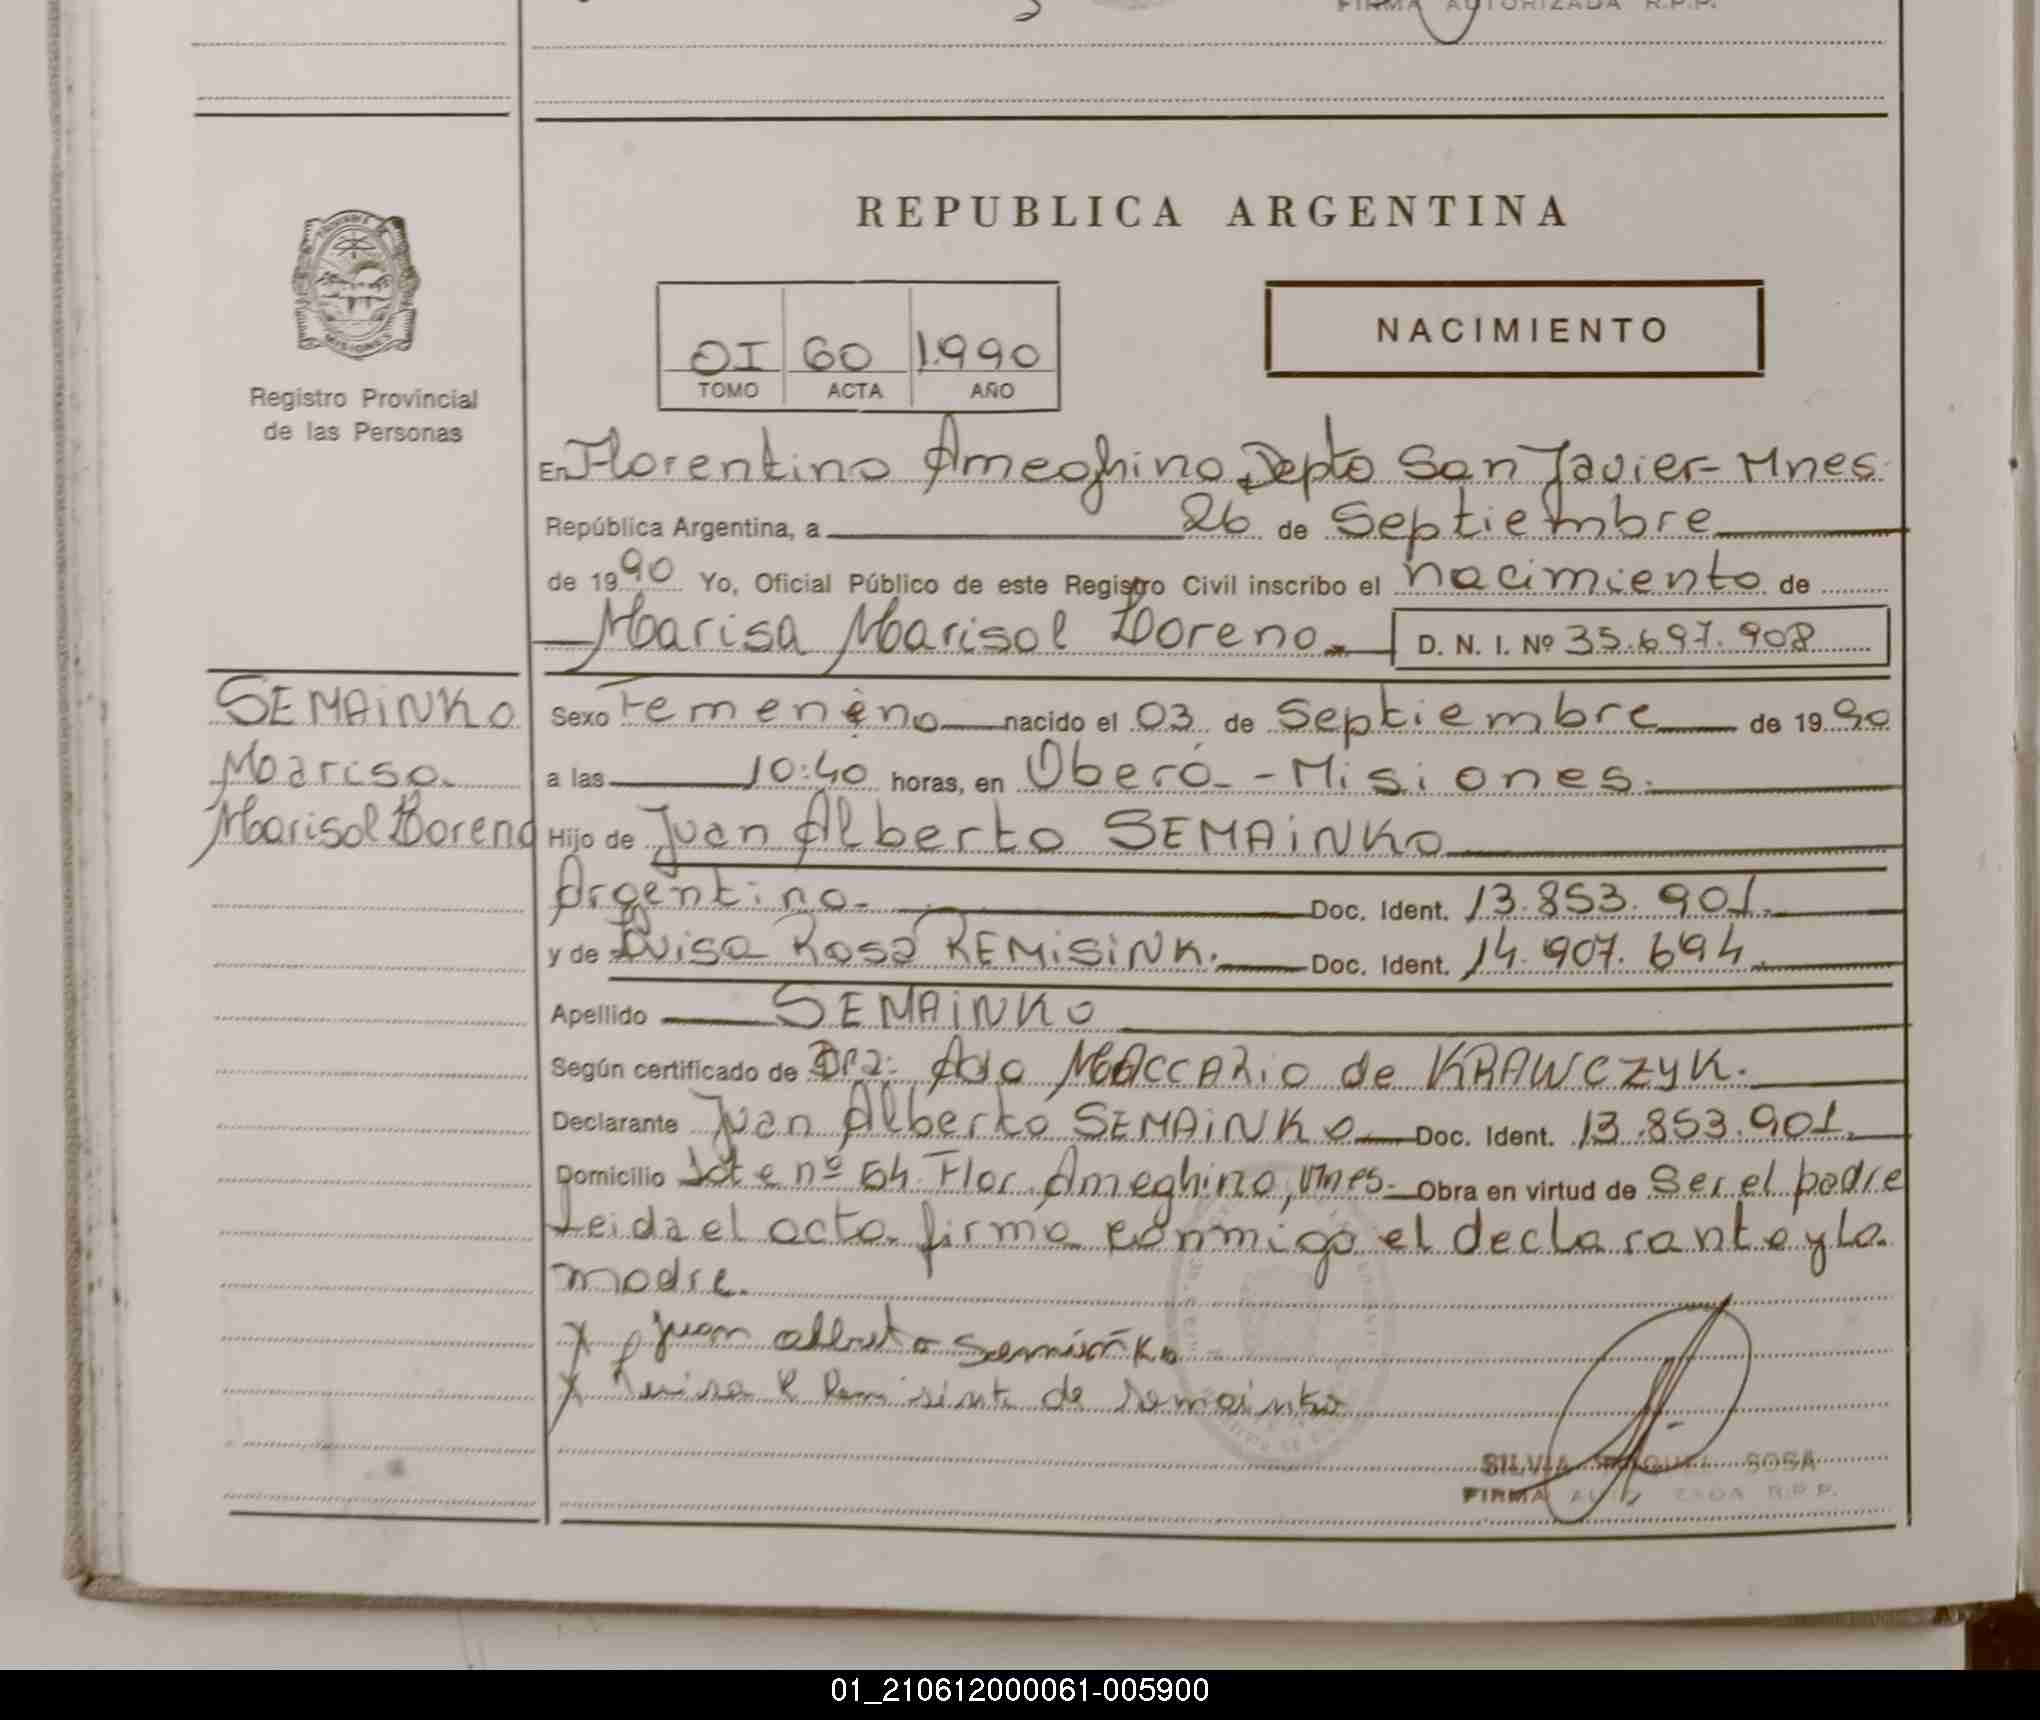 FIRMA AUTORIZADA R.P.P.
REPUBLICA ARGENTINA
NACIMIENTO
OI 60 1.990
TOMO ACTA AÑO
MISIONES
Registro Provincial
de las Personas
En Florentino Ameghino, Depto San Javier - Mnes.
República Argentina, a 26 de Septiembre
de 1990 Yo, Oficial Público de este Registro Civil inscribo el nacimiento de
Marisa Marisol Lorena.- D. N. I. Nº 35.697.908
SEMAiNKO
Marisa
Marisol Lorena
Sexo Femenino nacido el 03 de Septiembre de 1990
a las 10:40 horas, en Oberá - Misiones.
Hijo de Juan Alberto SEMAiNKO
Argentino. Doc. Ident. 13.853.901.
y de Luisa Rosa REMiSiNK. Doc. Ident. 14.907.694.
Apellido SEMAiNKO
Según certificado de Dra: Ada MACCARiO de KRAWCZYK.
Declarante Juan Alberto SEMAiNKO Doc. Ident. 13.853.901.
Domicilio Lote nº 54 Flor. Ameghino, Mnes. Obra en virtud de Ser el padre
Leida el acta firma conmigo el declarante y la
madre.
X Juan Alberto Semainko
X Luisa R Remisink de Semainko
SILVIA RAQUEL SOSA
FIRMA AUTORIZADA R.P.P.
01_210612000061-005900